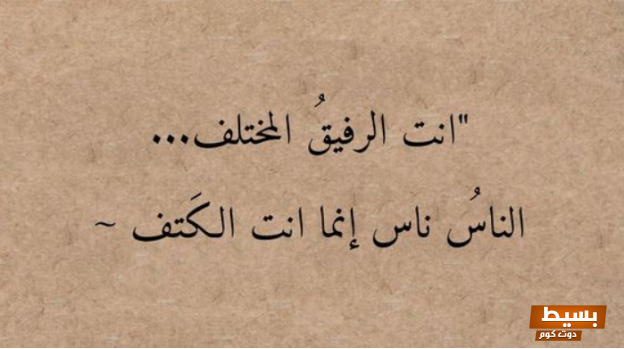 "انت الرفيقُ المختلف...
الناسُ ناس إنما انت الكَتف ~
بسيط
دوت كوم